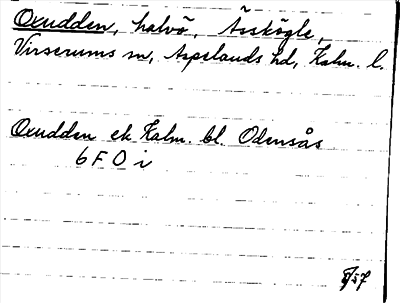 Oxudden, halvö, Åsskögle,
Virserums sn, Aspelands hd, Kalm. l.
Oxudden ek Kalm. bl. Odensås
6 F 0 i